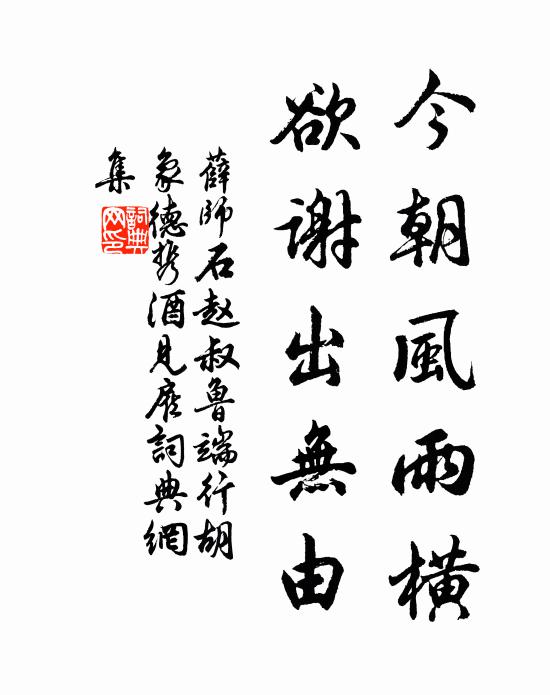 今朝風雨橫
欲謝出無由
薛師石赵叔魯端行胡
象德携酒見庭詞典網
集
詞典網印